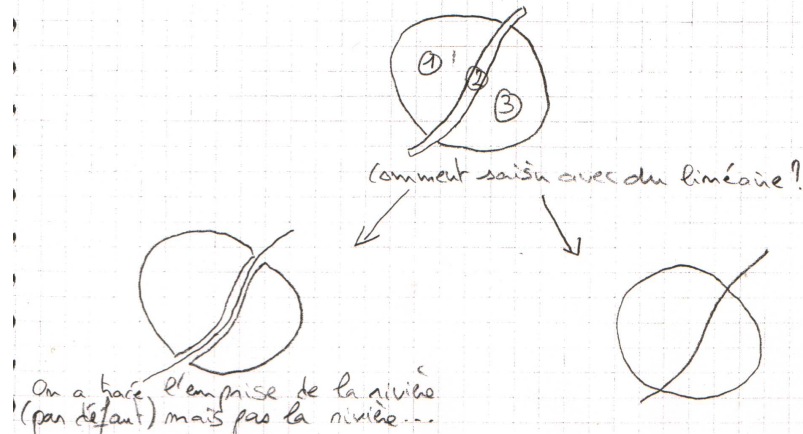 1
2
3
Comment saisir avec du linéaire ?
On a tracé l'emprise de la rivière
(par défaut) mais pas la rivière...